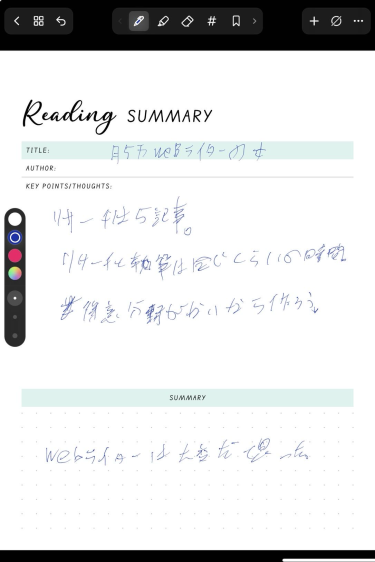 Reading SUMMARY
TITLE: 月5万webライターの女
AUTHOR:
KEY POINTS/THOUGHTS:
リサーチは5記事。
リサーチと執筆は同じくらいの時間
得意分野がないから作ろう。
SUMMARY
Webライターは大変だと思った